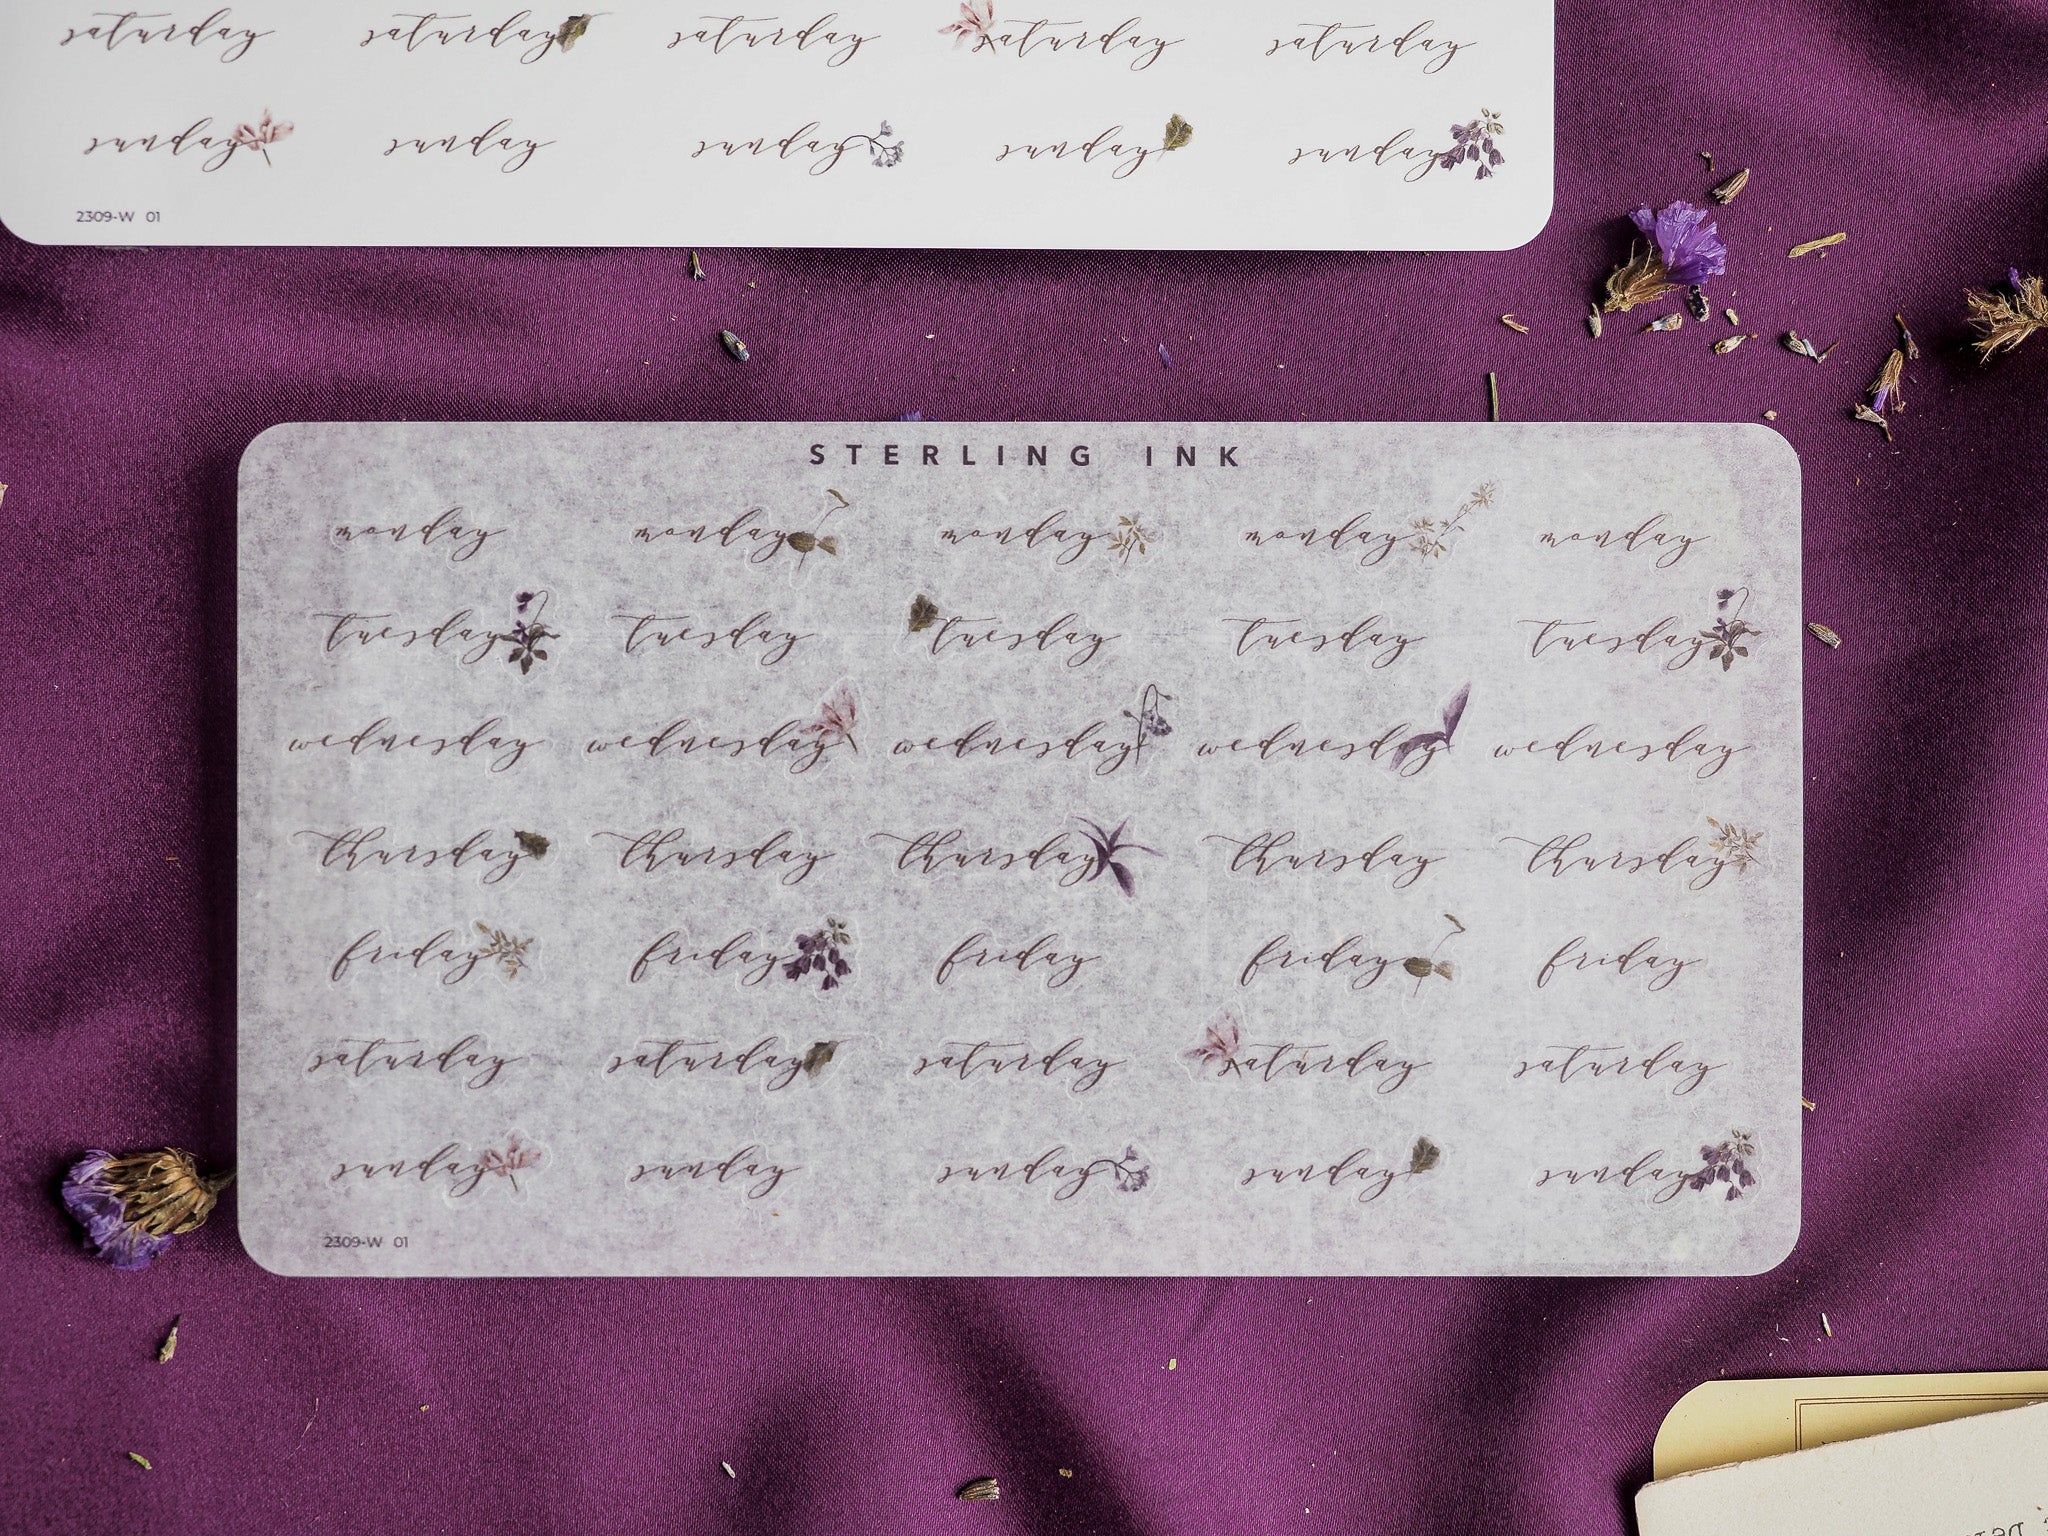 saturday saturday saturday saturday saturday
sunday sunday sunday sunday sunday
2309-W 01
STERLING INK
monday monday monday monday monday
tuesday tuesday tuesday tuesday tuesday
wednesday wednesday wednesday wednesday wednesday
thursday thursday thursday thursday thursday
friday friday friday friday friday
saturday saturday saturday saturday saturday
sunday sunday sunday sunday sunday
2309-W 01